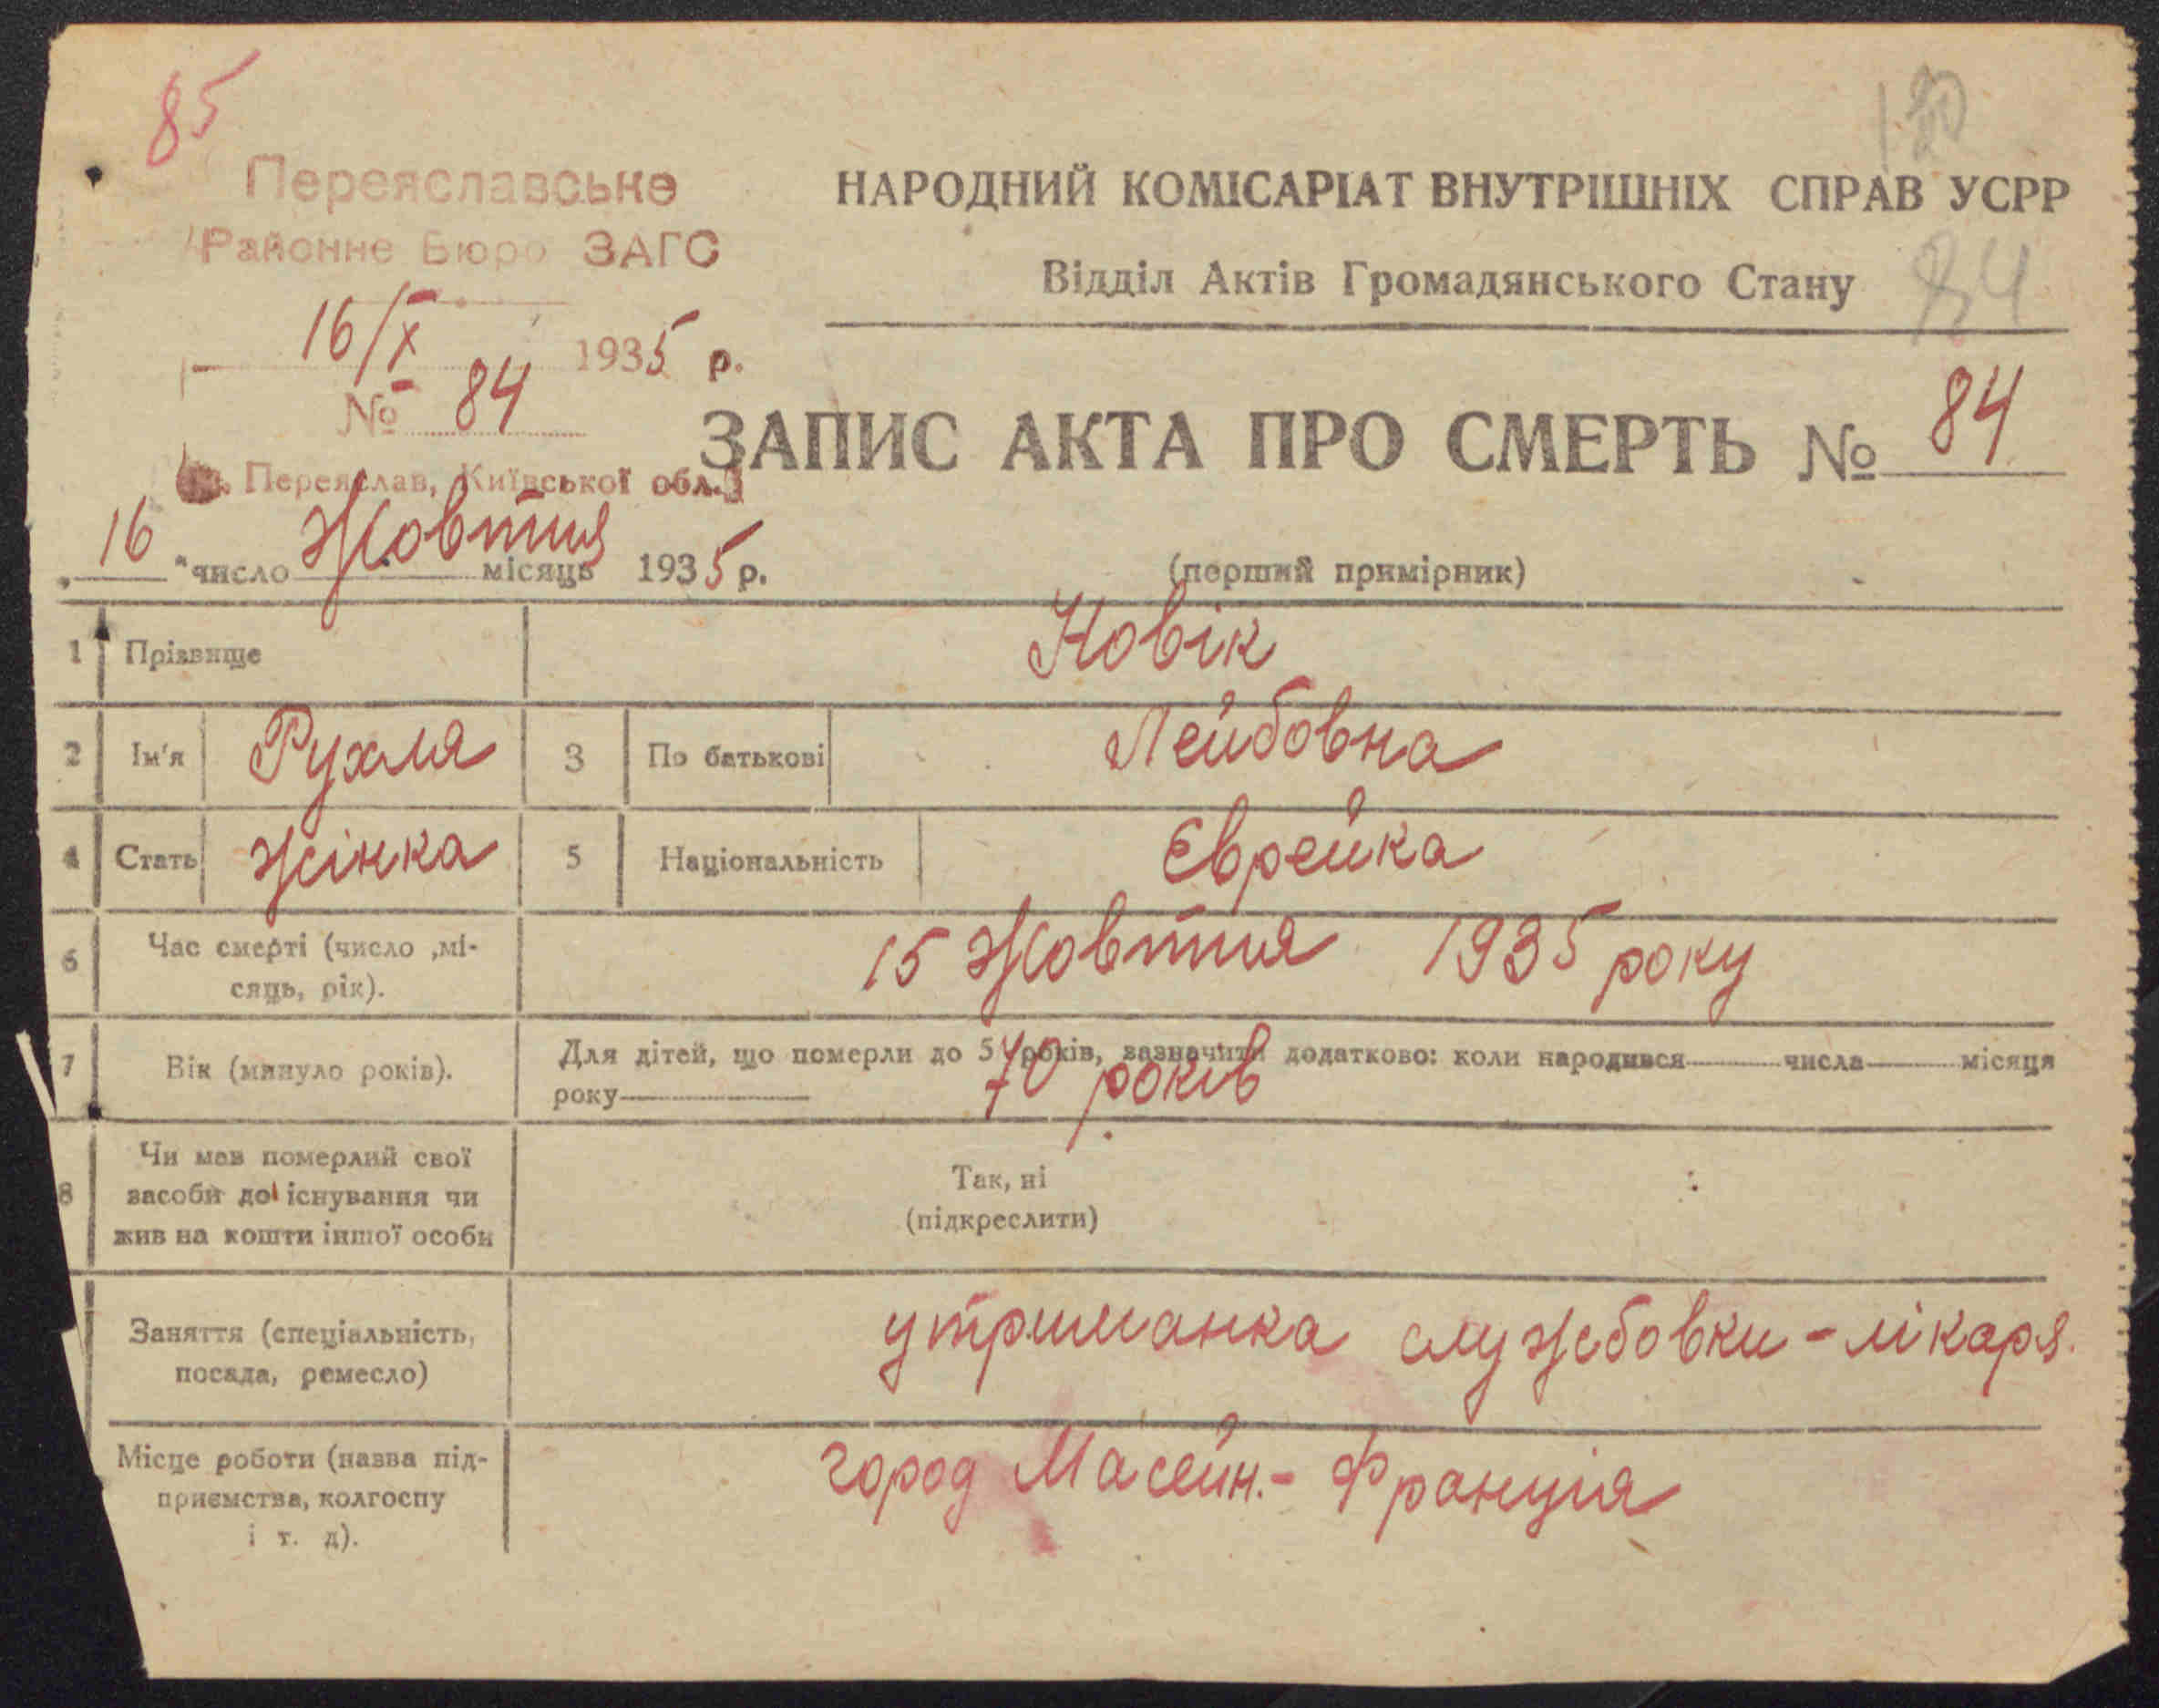 85
Переяславське
Районне Бюро ЗАГС
16/X 1935 р.
№ 84
м. Переяслав, Київської обл.
НАРОДНИЙ КОМІСАРІАТ ВНУТРІШНІХ СПРАВ УСРР
Відділ Актів Громадянського Стану
84
ЗАПИС АКТА ПРО СМЕРТЬ № 84
„16 " число Жовтня місяць 1935 р.
(перший примірник)
1 Прізвище Новік
2 Ім'я Рухля 3 По батькові Лейбовна
4 Стать Жінка 5 Національність Єврейка
6 Час смерті (число ,мі-
сяць, рік).
15 Жовтня 1935 року
7 Вік (минуло років).
Для дітей, що померли до 5 років, зазначити додатково: коли народився числа місяця
року
70 років
8 Чи мав померлий свої
засоби до існування чи
жив на кошти іншої особи
Так, ні
(підкреслити)
Заняття (спеціальність,
посада, ремесло)
утриманка службовки - лікаря.
Місце роботи (назва під-
приємства, колгоспу
і т. д).
город Масейн.- Франція